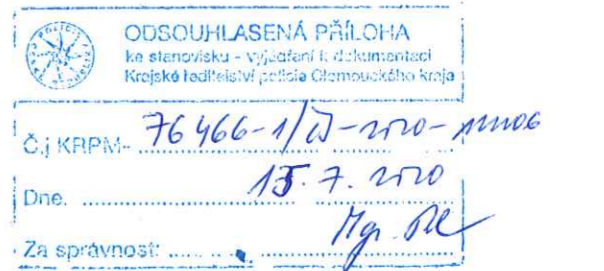 ODSOUHLASENÁ PŘÍLOHA
ke stanovisku - vyjádření k dokumentaci
Krajské ředitelství policie Olomouckého kraje
Č.j KRPM- 76466-1/ČJ-2020-
Dne. 15. 7. 2020
Za správnost: Mgr.